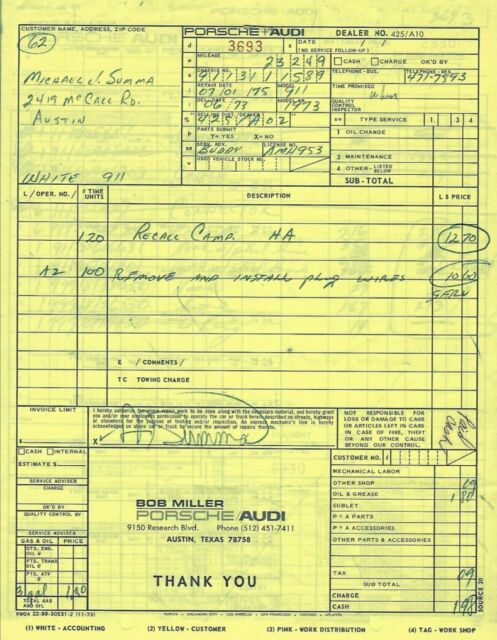 CUSTOMER NAME, ADDRESS, ZIP CODE
62
MICHAEL J. SUMMA
2419 McCALL RD.
AUSTIN
WHITE 911
PORSCHE+AUDI
DEALER NO. 425/A10
3693
DATE / /
(NO SERVICE FOLLOW-UP)
MILEAGE
23249
CASH CHARGE OK'D BY
CHASSIS NO.
9113111589
TELEPHONE-BUS. TELEPHONE-RES.
477-7593
REPAIR DATE MODEL
07 01 75 911
TIME PROMISED
When
DEL. DATE MODEL YR.
06 73 1973
QUALITY
CONTROL
INSPECTOR
SELLING DIST./DEALER
425 A02
SV TYPE SERVICE 1 3 4
PARTS SUBMIT
Y= YES X= NO
1 OIL CHANGE
SERV. ADV. LICENSE NO.
BUDDY AMH953
3 MAINTENANCE
USED VEHICLE STOCK NO.
4 OTHER-LISTED BELOW
SUB-TOTAL
L / OPER. NO. / # TIME UNITS DESCRIPTION L $ PRICE
120 RECALL CAMP. HA 12.70
A2 100 REMOVE AND INSTALL PLUG WIRES 10.60
SERV
E / COMMENTS /
TC TOWING CHARGE
INVOICE LIMIT
$
I hereby authorize the above repair work to be done along with the necessary material, and hereby grant
you and/or your employees permission to operate the car or truck herein described on streets, highways
or elsewhere for the purpose of testing and/or inspection. An express mechanic's lien is hereby
acknowledged on above car or truck to secure the amount of repairs thereto.
X Summa
NOT RESPONSIBLE FOR
LOSS OR DAMAGE TO CARS
OR ARTICLES LEFT IN CARS
IN CASE OF FIRE, THEFT
OR ANY OTHER CAUSE
BEYOND OUR CONTROL.
Paid
Cash
CASH INTERNAL
CUSTOMER NO.
ESTIMATE $
MECHANICAL LABOR
SERVICE ADVISER
CHARGE
OTHER SHOP
OIL & GREASE 1 80
OK'D BY
QUALITY CONTROL BY
SUBLET
P + A PARTS
P + A ACCESSORIES
OTHER PARTS & ACCESSORIES
SERVICE ADVISER
BOB MILLER
PORSCHE/AUDI
9150 Research Blvd. Phone (512) 451-7411
AUSTIN, TEXAS 78758
THANK YOU
GAS & OIL PRICE
QTS. ENG.
OIL @
PTS. TRANS
OIL @
PTS. ATF
@
3 gal 1.80
TOTAL GAS
AND OIL
TAX 09
SUB TOTAL
CHARGE
CASH 1.98
SOURCE 20
VWOA 22-99-30531-2 (11-73)
(1) WHITE - ACCOUNTING (2) YELLOW - CUSTOMER (3) PINK - WORK DISTRIBUTION (4) TAG - WORK SHOP